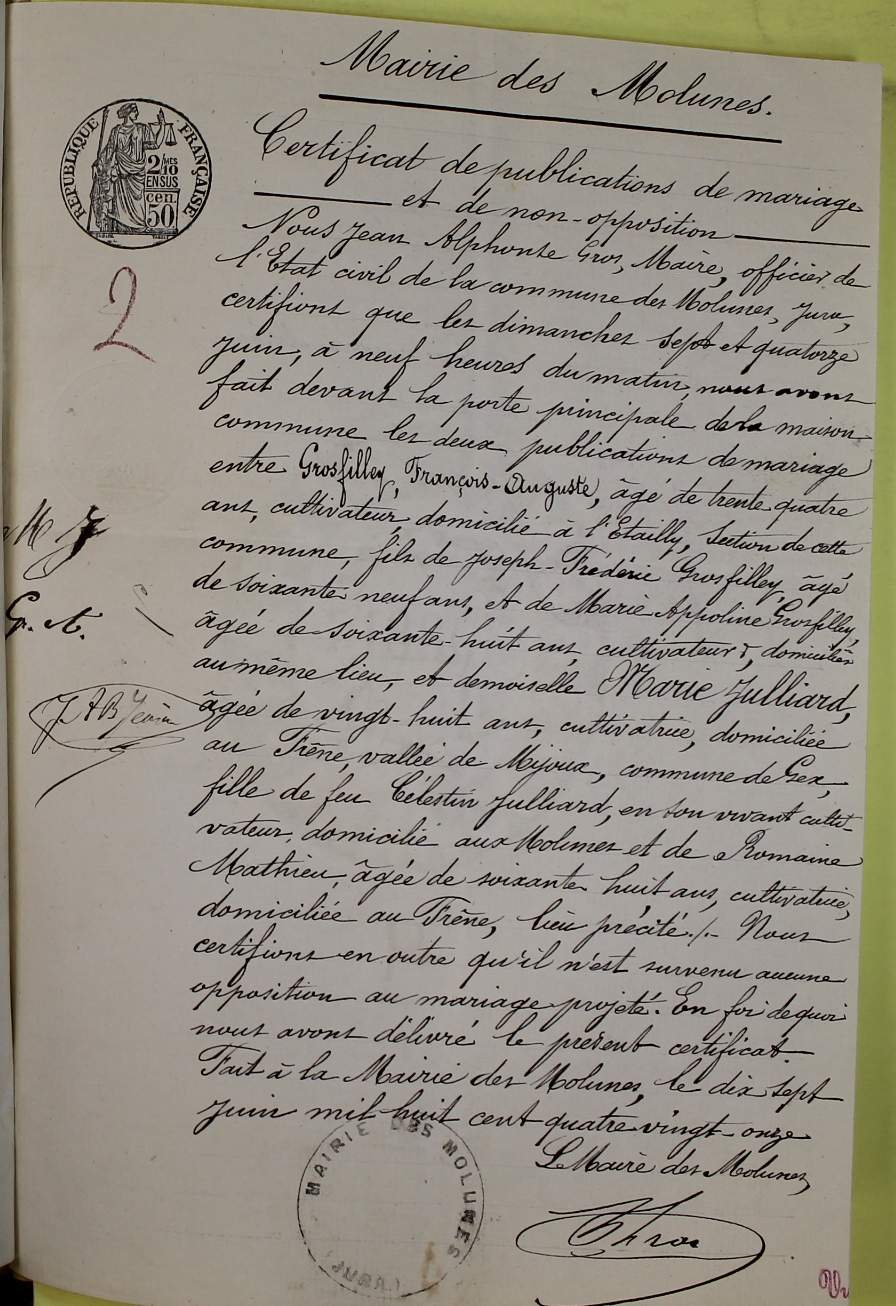 Mairie des Molunes.
RÉPUBLIQUE FRANÇAISE
2/10 MES
EN SUS
cen.
50
Certificat de publications de mariage
et de non-opposition
Nous Jean Alphonse Gros, Maire, officier de
l'Etat civil de la commune des Molunes, Jura,
certifions que les dimanches sept et quatorze
Juin, à neuf heures du matin, nous avons
fait devant la porte principale de la maison
commune les deux publications de mariage
entre Grosfilley, François-Auguste, âgé de trente quatre
ans, cultivateur, domicilié à l'Etailly, section de cette
commune, fils de Joseph-Frédéric Grosfilley, âgé
de soixante neuf ans, et de Marie Appoline Grosfilley,
âgée de soixante-huit ans, cultivateurs, domiciliés
au même lieu, et demoiselle Marie Julliard,
âgée de vingt-huit ans, cultivatrice, domiciliée
au Frêne, vallée de Mijoux, commune de Gex,
fille de feu Célestin Julliard, en son vivant culti-
vateur, domicilié aux Molunes et de Romaine
Mathieu, âgée de soixante huit ans, cultivatrice,
domiciliée au Frêne, lieu précité ./- Nous
certifions en outre qu'il n'est survenu aucune
opposition au mariage projeté. En foi de quoi
nous avons délivré le présent certificat.
Fait à la Mairie des Molunes, le dix sept
Juin mil huit cent quatre vingt-onze
Le Maire des Molunes,
2
G. A.
MAIRIE DES MOLUNES
(JURA)